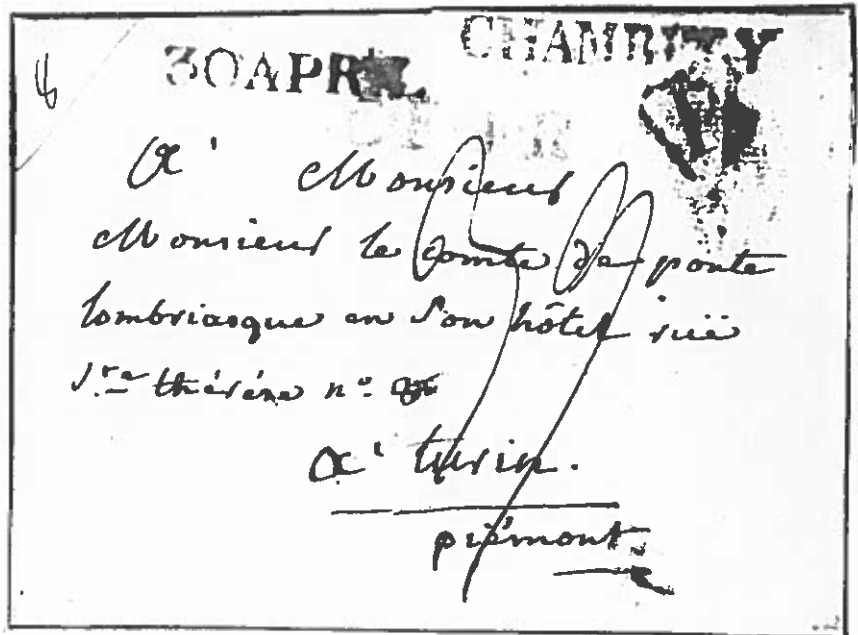 30 APRIL CHAMBERY
A' Monsieur
Monsieur le comte de ponte
lombriasque en son hôtel rüe
ste thérése n°
A' turin.
piémont